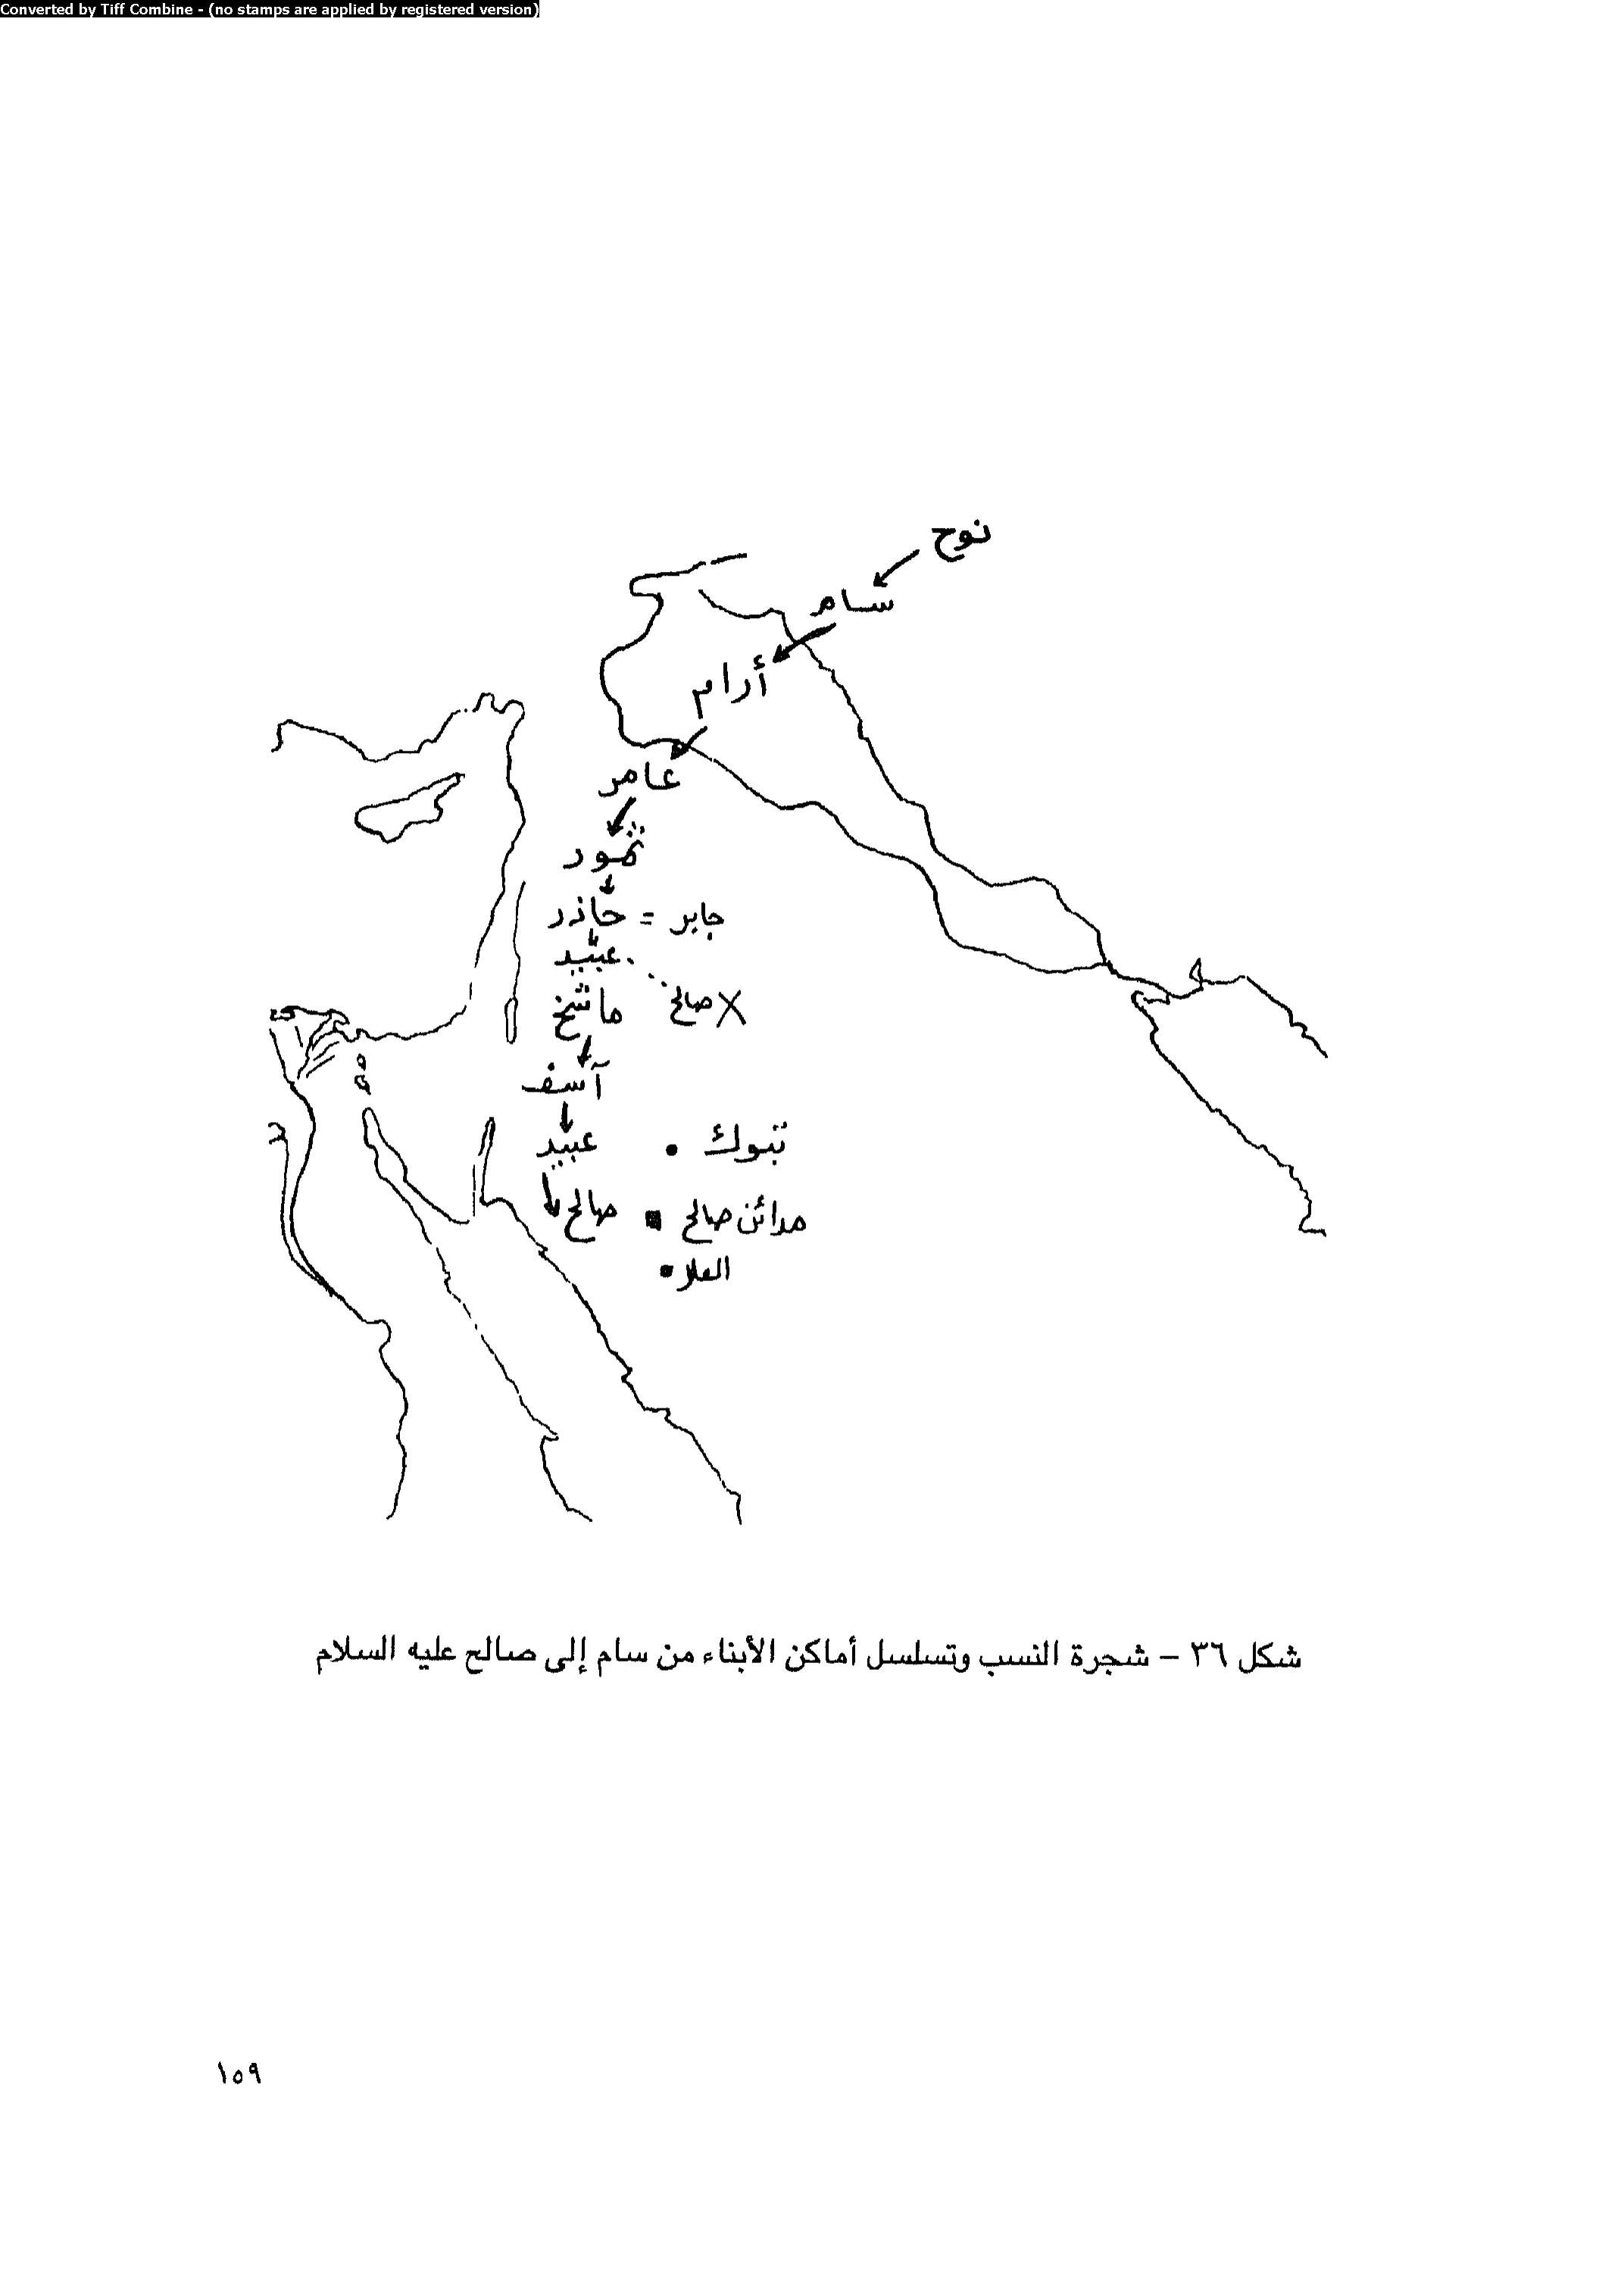 Converted by Tiff Combine - (no stamps are applied by registered version)
نوح
سام
أرام
عامر
ثمود
جابر = حاذر
عبيد
ماشخ
صالح X
آسف
عبيد
تبوك
صالح
مدائن صالح
العلا
شكل ٣٦ – شجرة النسب وتسلسل أماكن الأبناء من سام إلى صالح عليه السلام
١٥٩